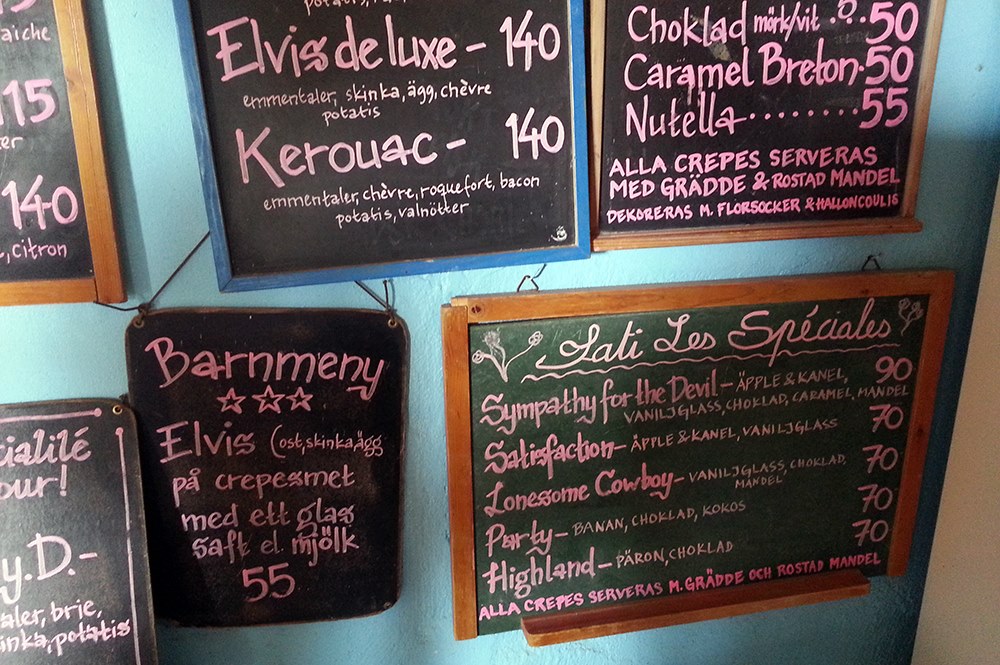 aiche
15
ter
140
, citron
potatis,
Elvis de luxe - 140
emmentaler, skinka, ägg, chèvre
potatis
Kerouac - 140
emmentaler, chèvre, roquefort, bacon
potatis, valnötter
Choklad mörk/vit 50
Caramel Breton. 50
Nutella........ 55
ALLA CREPES SERVERAS
MED GRÄDDE & ROSTAD MANDEL
DEKORERAS M. FLORSOCKER & HALLONCOULIS
Barnmeny
Elvis (ost, skinka, ägg
på crepesmet
med ett glas
saft el. mjölk
55
cialité
our!
y.D.-
aler, brie,
inka, potatis
Lati Les Spéciales
Sympathy for the Devil - ÄPPLE & KANEL, 90
VANILJGLASS, CHOKLAD, CARAMEL, MANDEL
Satisfaction - ÄPPLE & KANEL, VANILJGLASS 70
Lonesome Cowboy - VANILJGLASS, CHOKLAD, 70
MANDEL
Party - BANAN, CHOKLAD, KOKOS 70
Highland - PÄRON, CHOKLAD 70
ALLA CREPES SERVERAS M. GRÄDDE OCH ROSTAD MANDEL